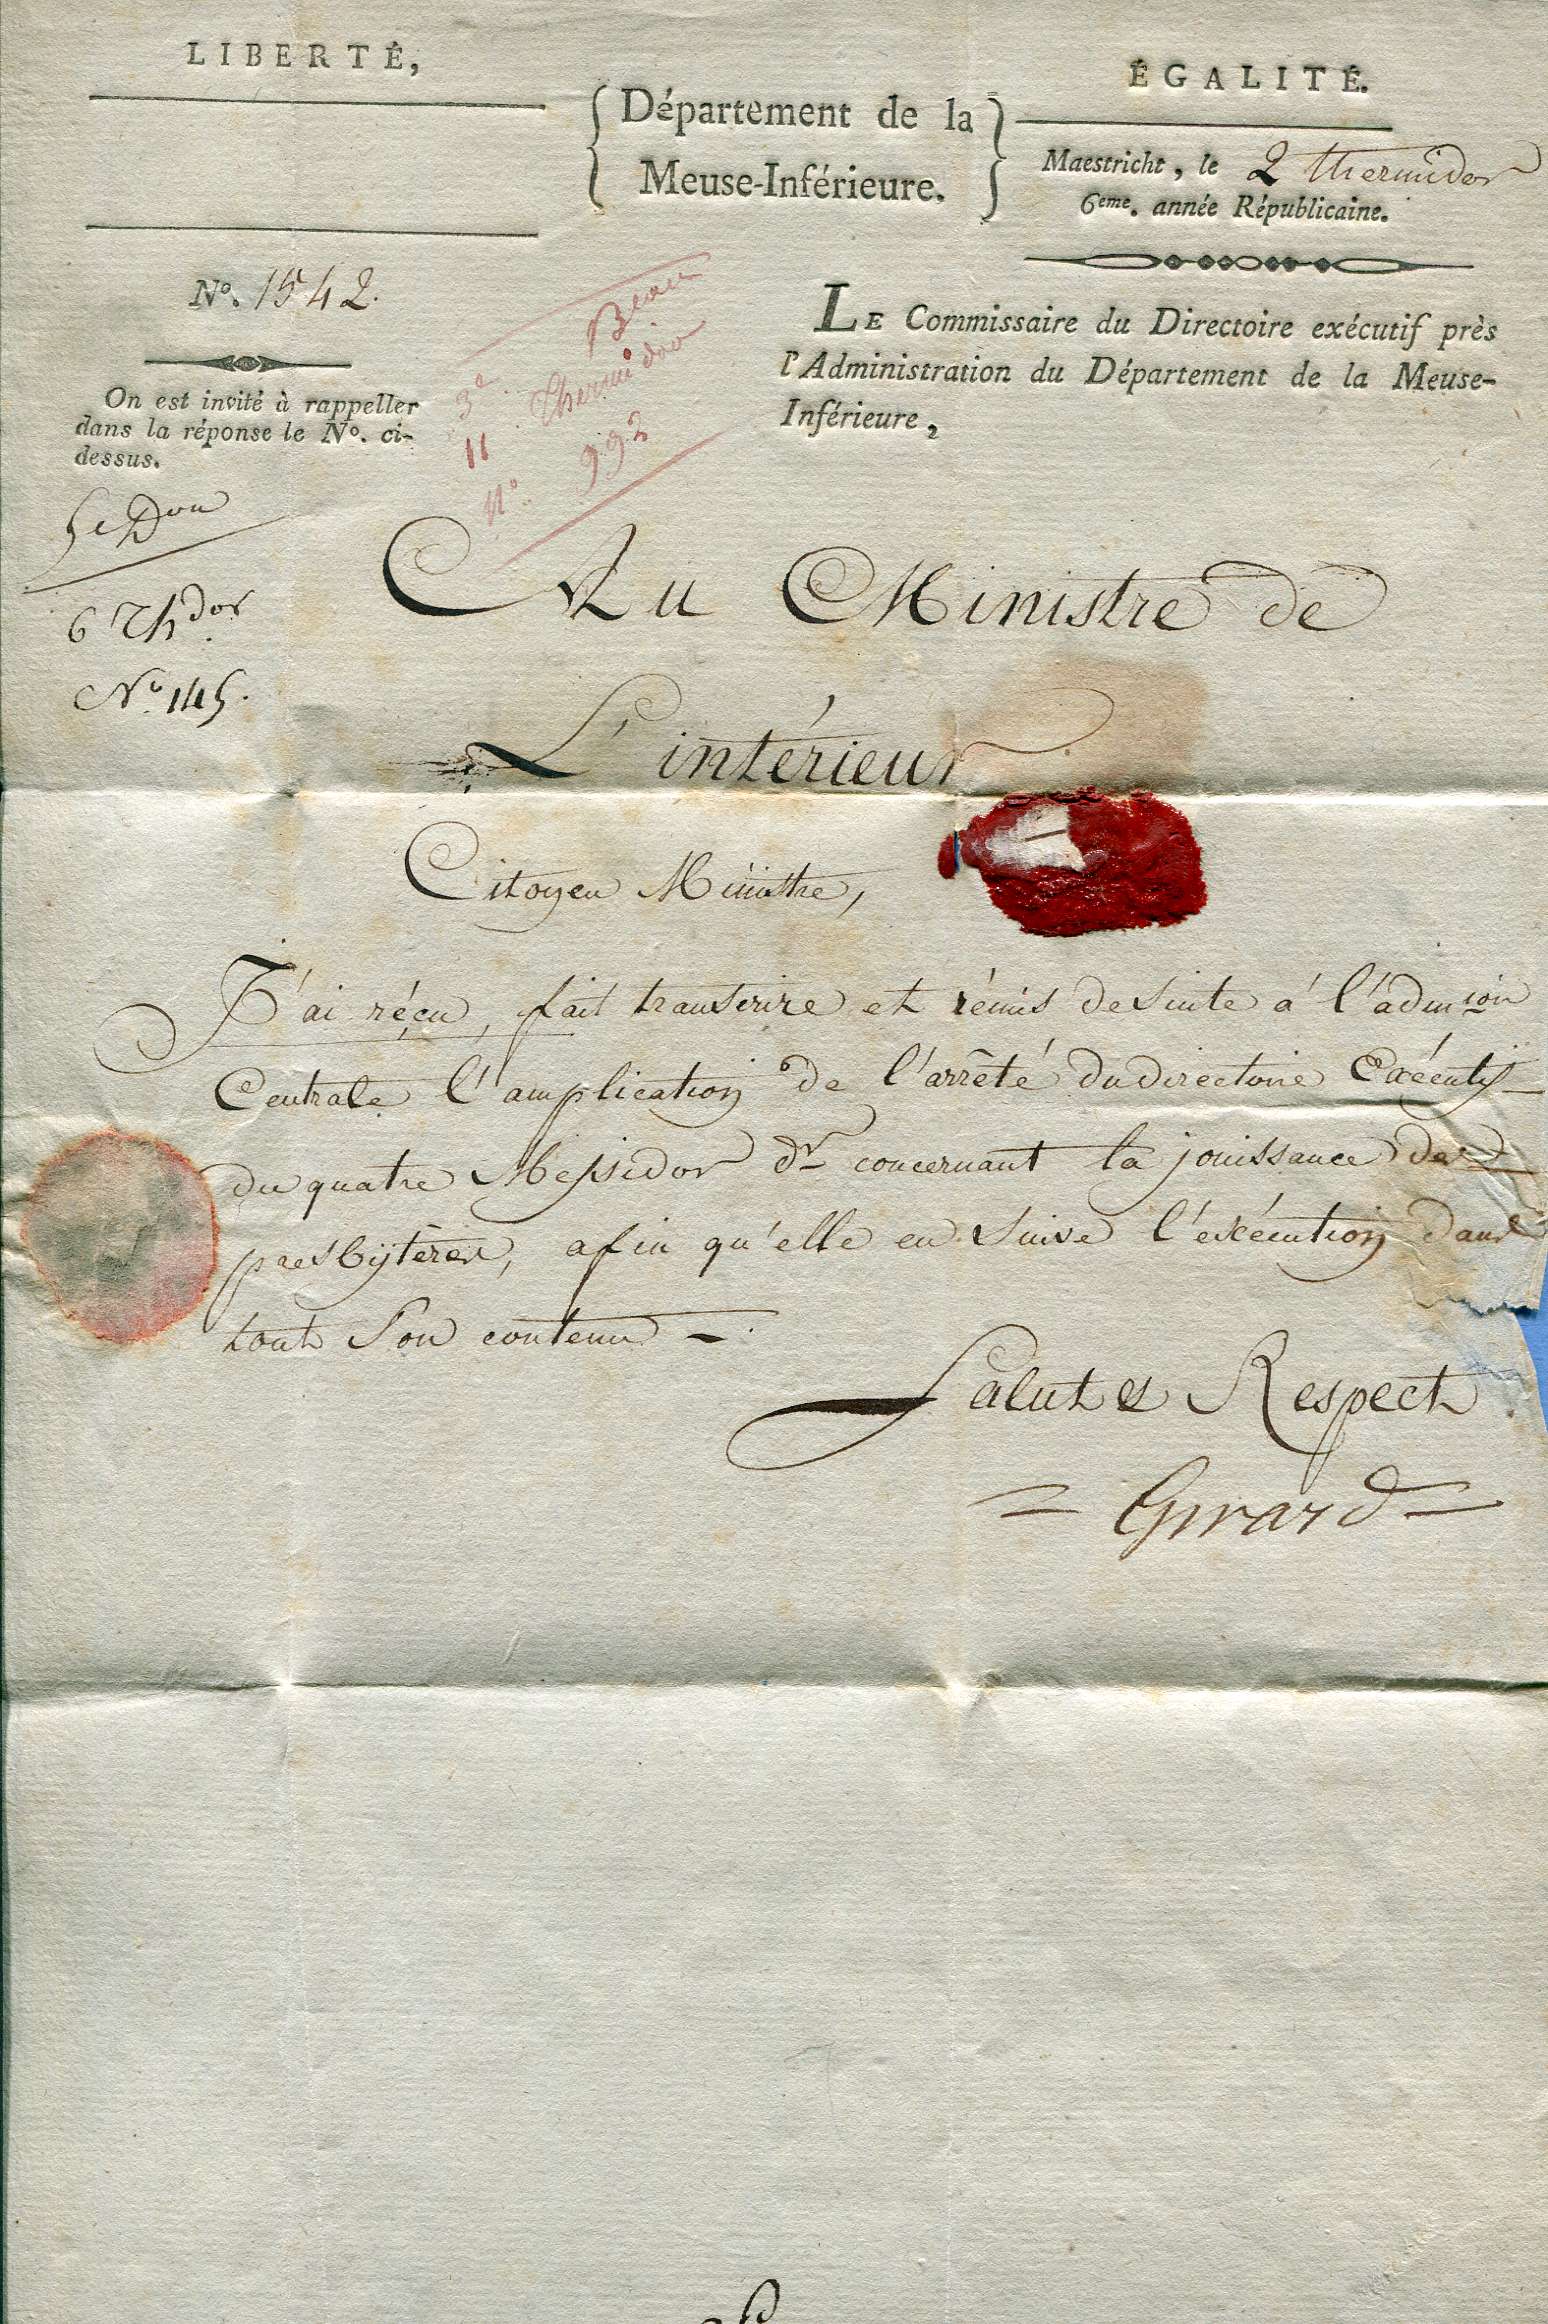 LIBERTÉ,
ÉGALITÉ.
Département de la
Meuse-Inférieure.
Maestricht, le 2 thermidor
6eme. année Républicaine.
No. 1542.
On est invité à rappeller
dans la réponse le No. ci-
dessus.
LE Commissaire du Directoire exécutif près
l'Administration du Département de la Meuse-
Inférieure,
3e
11 thermidor
No 992
5e Don
6 Thdor
No 145.
Au Ministre de
L'intérieur
Citoyen Ministre,
J'ai réçu, fait transcrire et rémis de suite á l'admion
Centrale l'amplication de l'arrêté du directoire Exécutif
du quatre Messidor dr concernant la jouissance des
presbÿteres, afin qu'elle en suive l'exécution dans
tout Son contenu -.
Salut & Respect
= Girard =